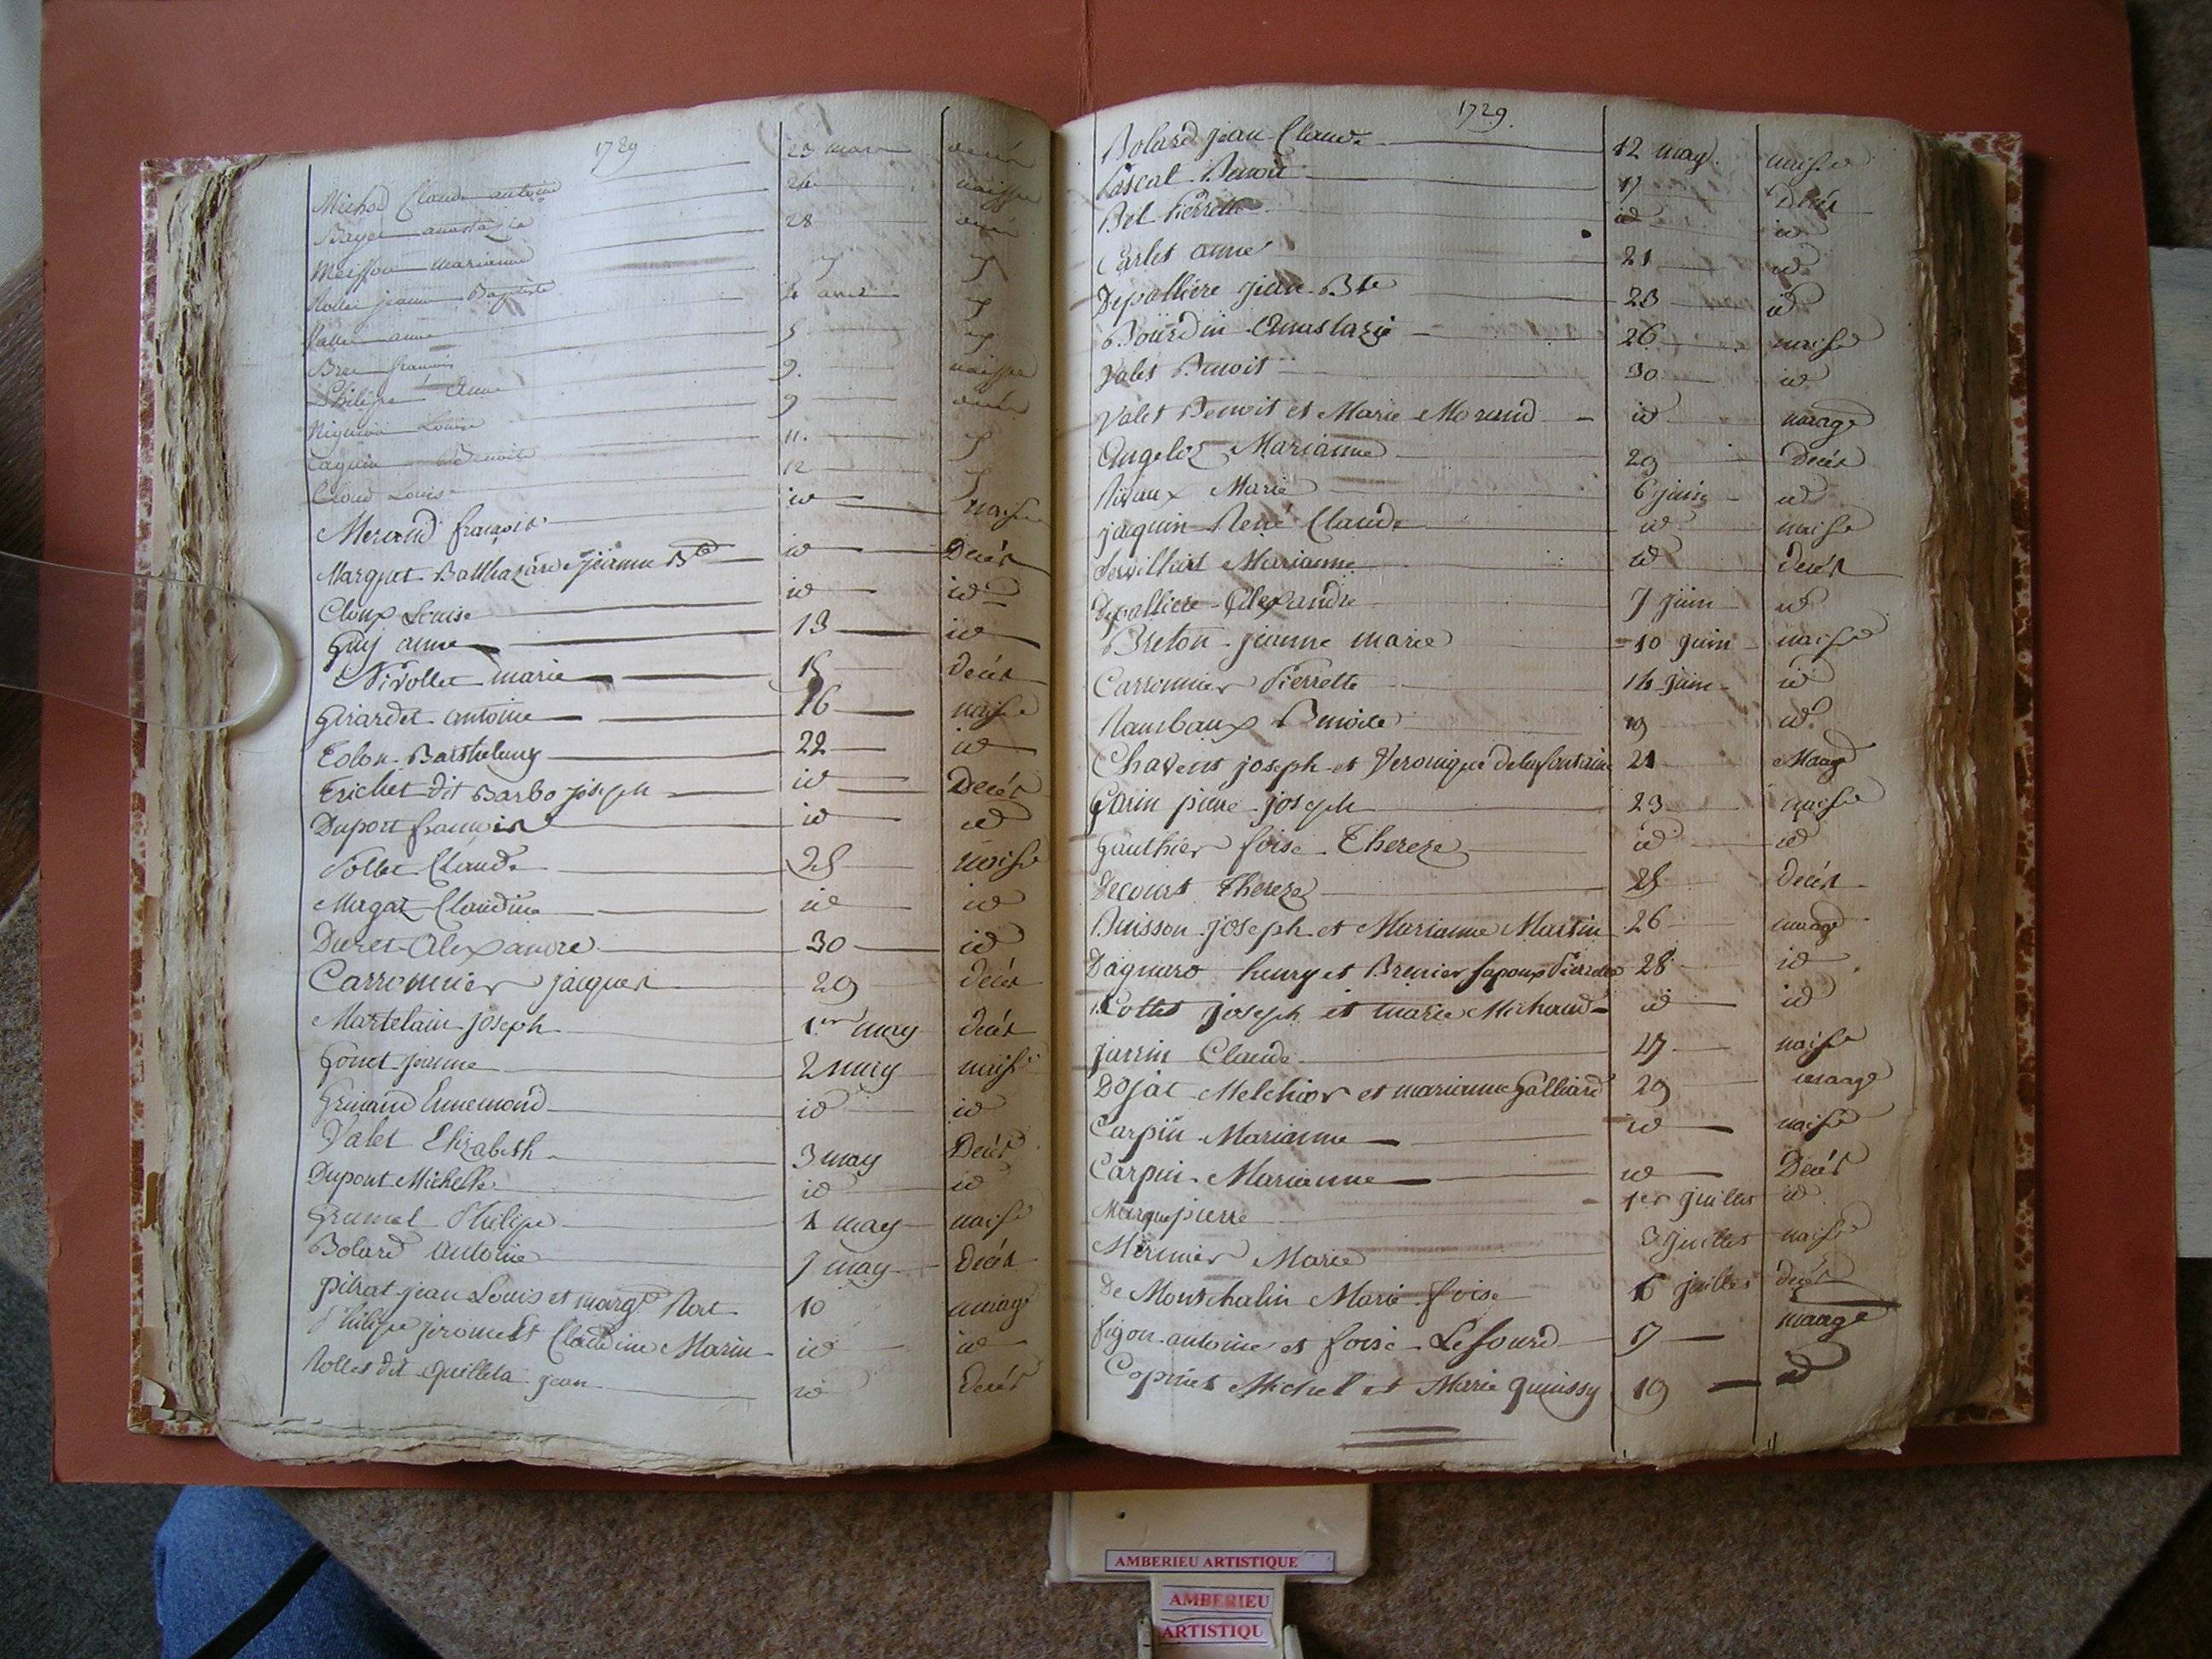 1789
23 mars
Michod Claude antoine 24 naisse
Bayet anastazie 28
Meisson marianne
Rollet jeanne Baptiste 4 avril
Vallet anne 5
Bret francois 9. naisse
Philipe Anne 9
Louise 11.
Jaquin Benoite 12
Cloud Louise id naisse
Merand françois
Marquet Balthazard jeanne Bte id Decés
Cloup Louise id id
Guy anne 13 id
Pivollet marie 15 decés
Girardet antoine 16 naisse
Tolon Barthelemy 22 id
Trichet dit Barbo joseph id Decés
Duport francois id id
Follet Claude 25 naisse
Magat Claudine id id
Duret Alexandre 30 id
Carronnier jacques 29 decés
Martelain joseph 1er may decés
Gonet jeanne 2 may naisse
Grinand Ennemond id id
Valet Elizabeth 3 may Decés
Dupont Michelle id id
Grumel Philipe 4 may naisse
Bolard antoine 7 may Decés
pitrat jean Louis et margte Rort 10 mariage
Philipe jerome et Claudine Marin id id
Rollet dit quilleta jean id Decés
1729.
Bolard jean Claude 12 may naisse
Pascal Benoit 17 Decés
Bel Pierrette id id
Carlet anne 21 id
Depalliere jean Bte 23 id
Bourdin Anastazie 26 naisse
Valet Benoit 30 id
Valet Benoit et Marie Morand id mariage
Angeloz Marianne 29 Decés
Rivaux Marie 6 juin id
jaquin René Claude id naisse
Servilliat Marianne id decés
Depalliere Alexandre 7 juin id
Breton jeanne marie 10 juin naisse
Carronnier Pierrette 14 juin id
Rambaux Benoite 19 id
Chavent joseph et Veronique delafontaine 21 Mariage
Garin piere joseph 23 naisse
Gauthier foise Thereze id id
Decourt Thereze 25 decés
Buisson joseph et Marianne Martin 26 mariage
Dagnaro henry et Brenier sapoux Pierrette 28 id
Cottet joseph et marie Michaud id id
jarrin Claude 27 naisse
Dojat Melchior et marianne Galliard 29 mariage
Carpin Marianne id naisse
Carpin Marianne id Decés
Marque pierre 1er juillet id
Mermier Marie 3 juillet naisse
De Montchalin Marie foise 6 juillet decés
figon antoine et foise Lesourd 17 mariage
Copinet Michel et Marie quinssy 19 id
AMBERIEU ARTISTIQUE
AMBERIEU
ARTISTIQU